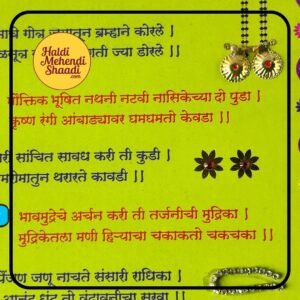 Haldi
Mehendi
Shaadi
.com
गोंत्र जगातून ब्रम्हाने कोरले ।
गाती ज्या डोरले ।।
मौक्तिक भूषित नथनी नटवी नासिकेच्या दो पुडा ।
कृष्ण रंगी आंबाड्यावर घमघमतो केवडा ।।
सांचित सावध करी ती कुडी ।
थरारते कावडी ।।
भावमुद्रेचे अर्चन करी ती तर्जनीची मुद्रिका ।
मुद्रिकेतला मणी हिऱ्याचा चकाकतो चकचका ।।
पैंजण जणू नाचते संसारी राधिका ।
आनंद धुंद ती वृंदावनीचा सखा ।।